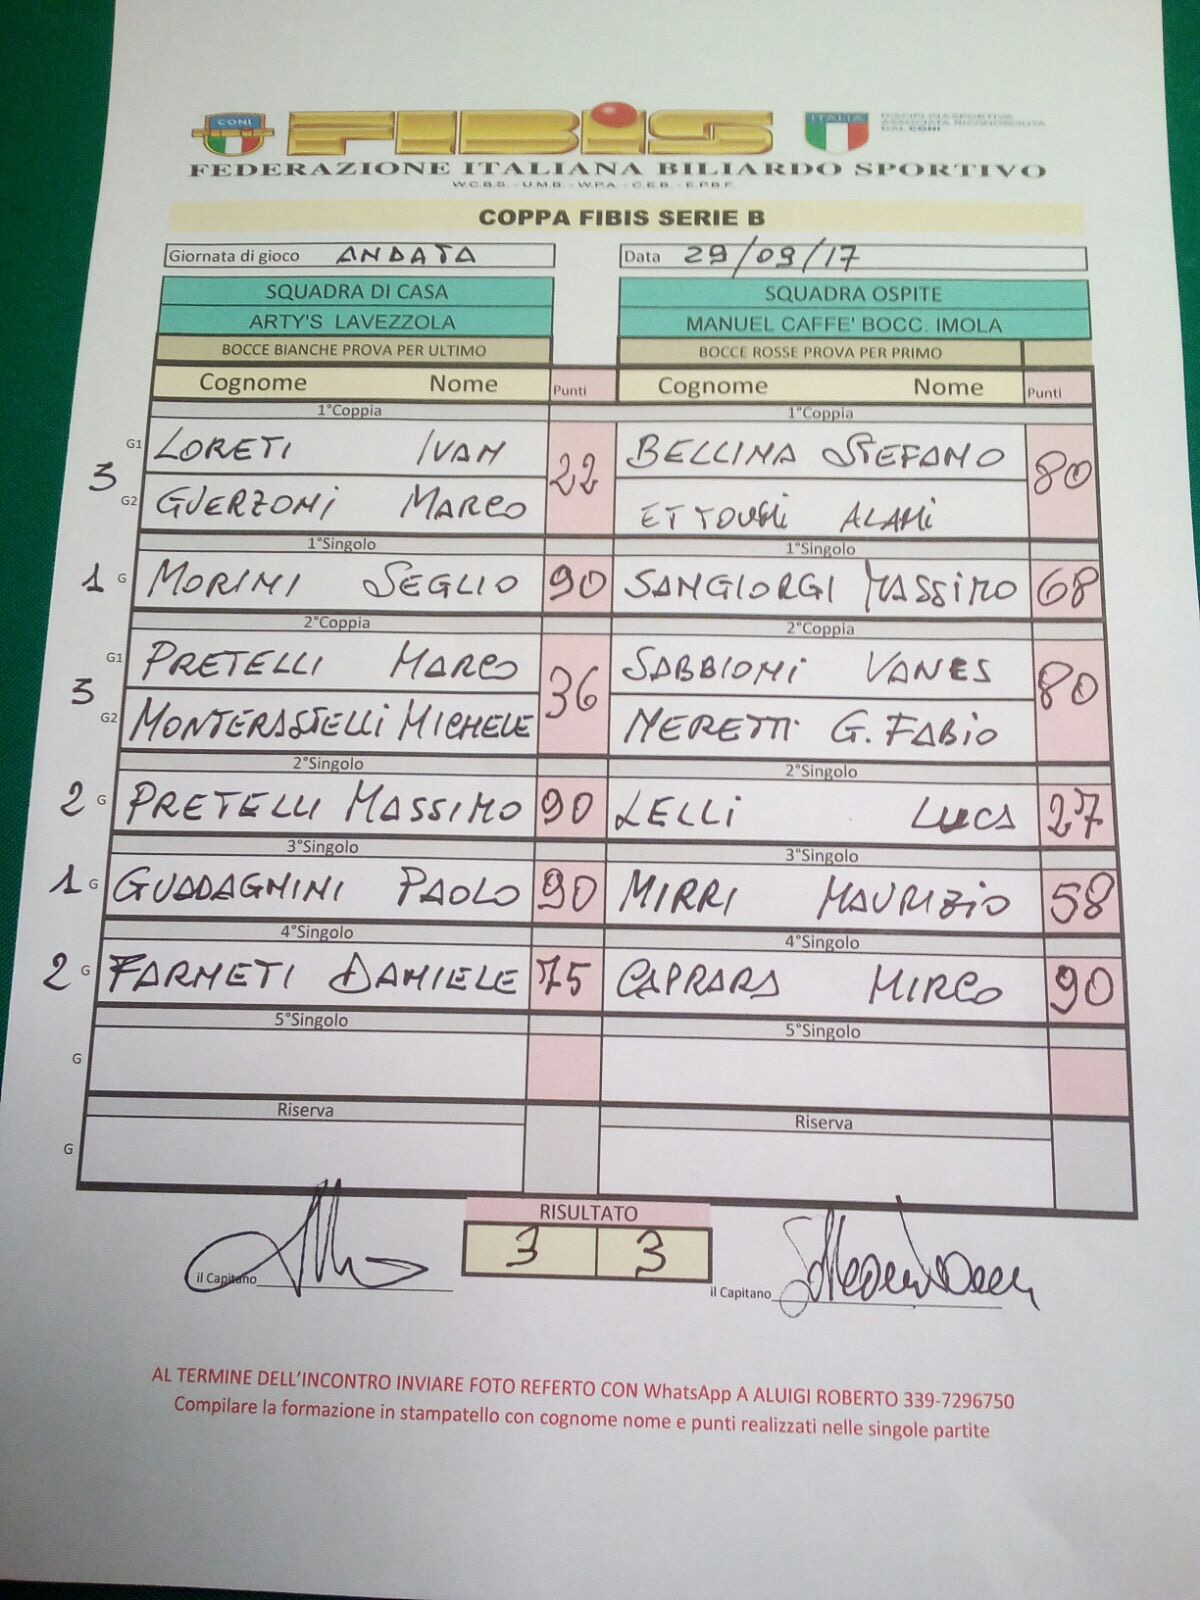 CONI
FIBiS
ITALIA
DISCIPLINA SPORTIVA
ASSOCIATA RICONOSCIUTA
DAL CONI
FEDERAZIONE ITALIANA BILIARDO SPORTIVO
W.C.B.S. - U.M.B. - W.P.A. - C.E.B. - E.P.B.F.
COPPA FIBIS SERIE B
Giornata di gioco ANDATA Data 29/09/17
SQUADRA DI CASA SQUADRA OSPITE
ARTY'S LAVEZZOLA MANUEL CAFFE' BOCC. IMOLA
BOCCE BIANCHE PROVA PER ULTIMO BOCCE ROSSE PROVA PER PRIMO
Cognome Nome Punti Cognome Nome Punti
1°Coppia 1°Coppia
3 G1 LORETI IVAN 22 BELLINA STEFANO 80
G2 GUERZONI MARCO ETTOUMI ALAMI
1°Singolo 1°Singolo
1 G MORINI SEGLIO 90 SANGIORGI MASSIMO 68
2°Coppia 2°Coppia
3 G1 PRETELLI MARCO 36 SABBIONI VANES 80
G2 MONTERASTELLI MICHELE NERETTI G. FABIO
2°Singolo 2°Singolo
2 G PRETELLI MASSIMO 90 LELLI LUCA 27
3°Singolo 3°Singolo
1 G GUADAGNINI PAOLO 90 MIRRI MAURIZIO 58
4°Singolo 4°Singolo
2 G FARNETI DANIELE 75 CAPRARA MIRCO 90
5°Singolo 5°Singolo
G
Riserva Riserva
G
RISULTATO
3 3
il Capitano il Capitano
AL TERMINE DELL'INCONTRO INVIARE FOTO REFERTO CON WhatsApp A ALUIGI ROBERTO 339-7296750
Compilare la formazione in stampatello con cognome nome e punti realizzati nelle singole partite